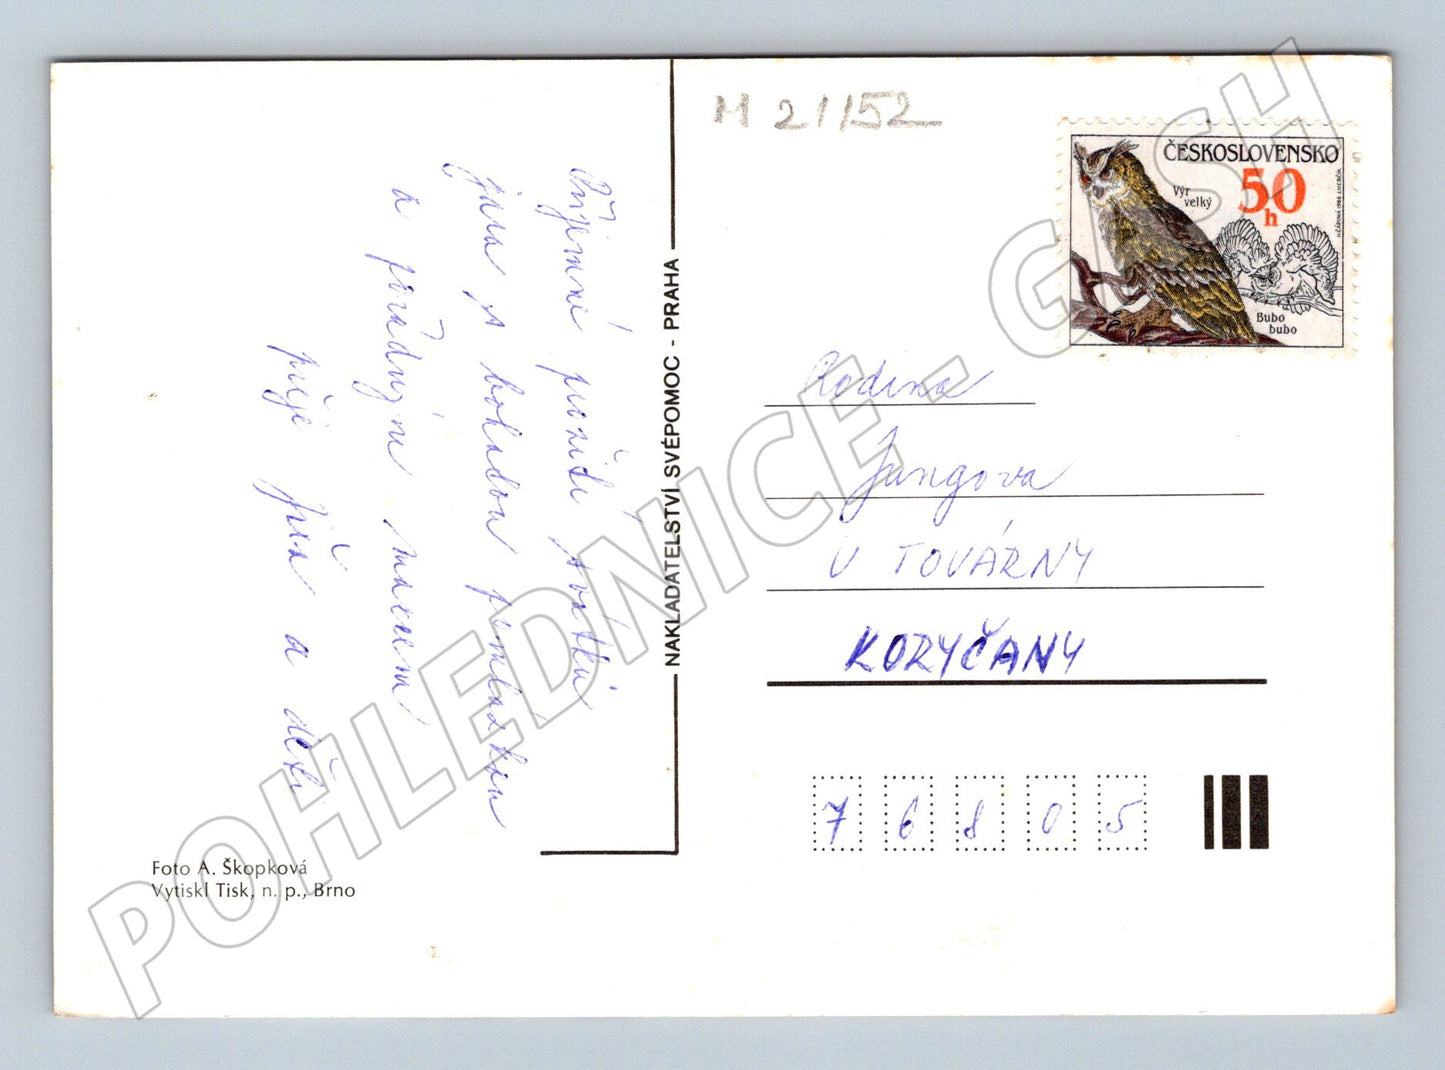 M 21/152
ČESKOSLOVENSKO
50
h
Výr
velký
Bubo
bubo
Příjemné prožití svátků
jara s bohatou pomlázkou
a pořádným mrazem
přeje Jiř a děti
NAKLADATELSTVÍ SVÉPOMOC - PRAHA
Rodina
Jungova
U TOVÁRNY
KORYČANY
7 6 8 0 5
Foto A. Škopková
Vytiskl Tisk, n. p., Brno
POHLEDNICE - GASH